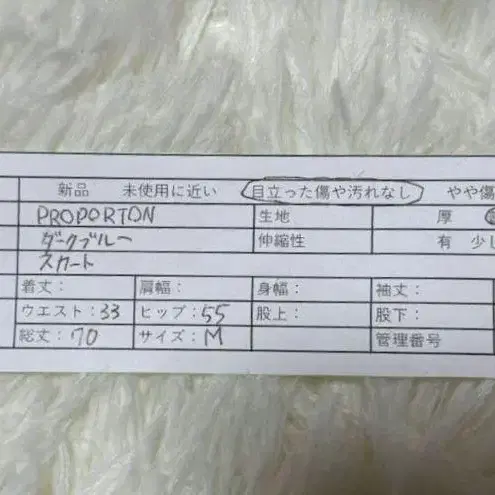 新品 未使用に近い 目立った傷や汚れなし やや傷
PROPORTON 生地 厚
ダークブルー 伸縮性 有 少し
スカート
着丈： 肩幅： 身幅： 袖丈：
ウエスト：33 ヒップ：55 股上： 股下：
総丈：70 サイズ：M 管理番号